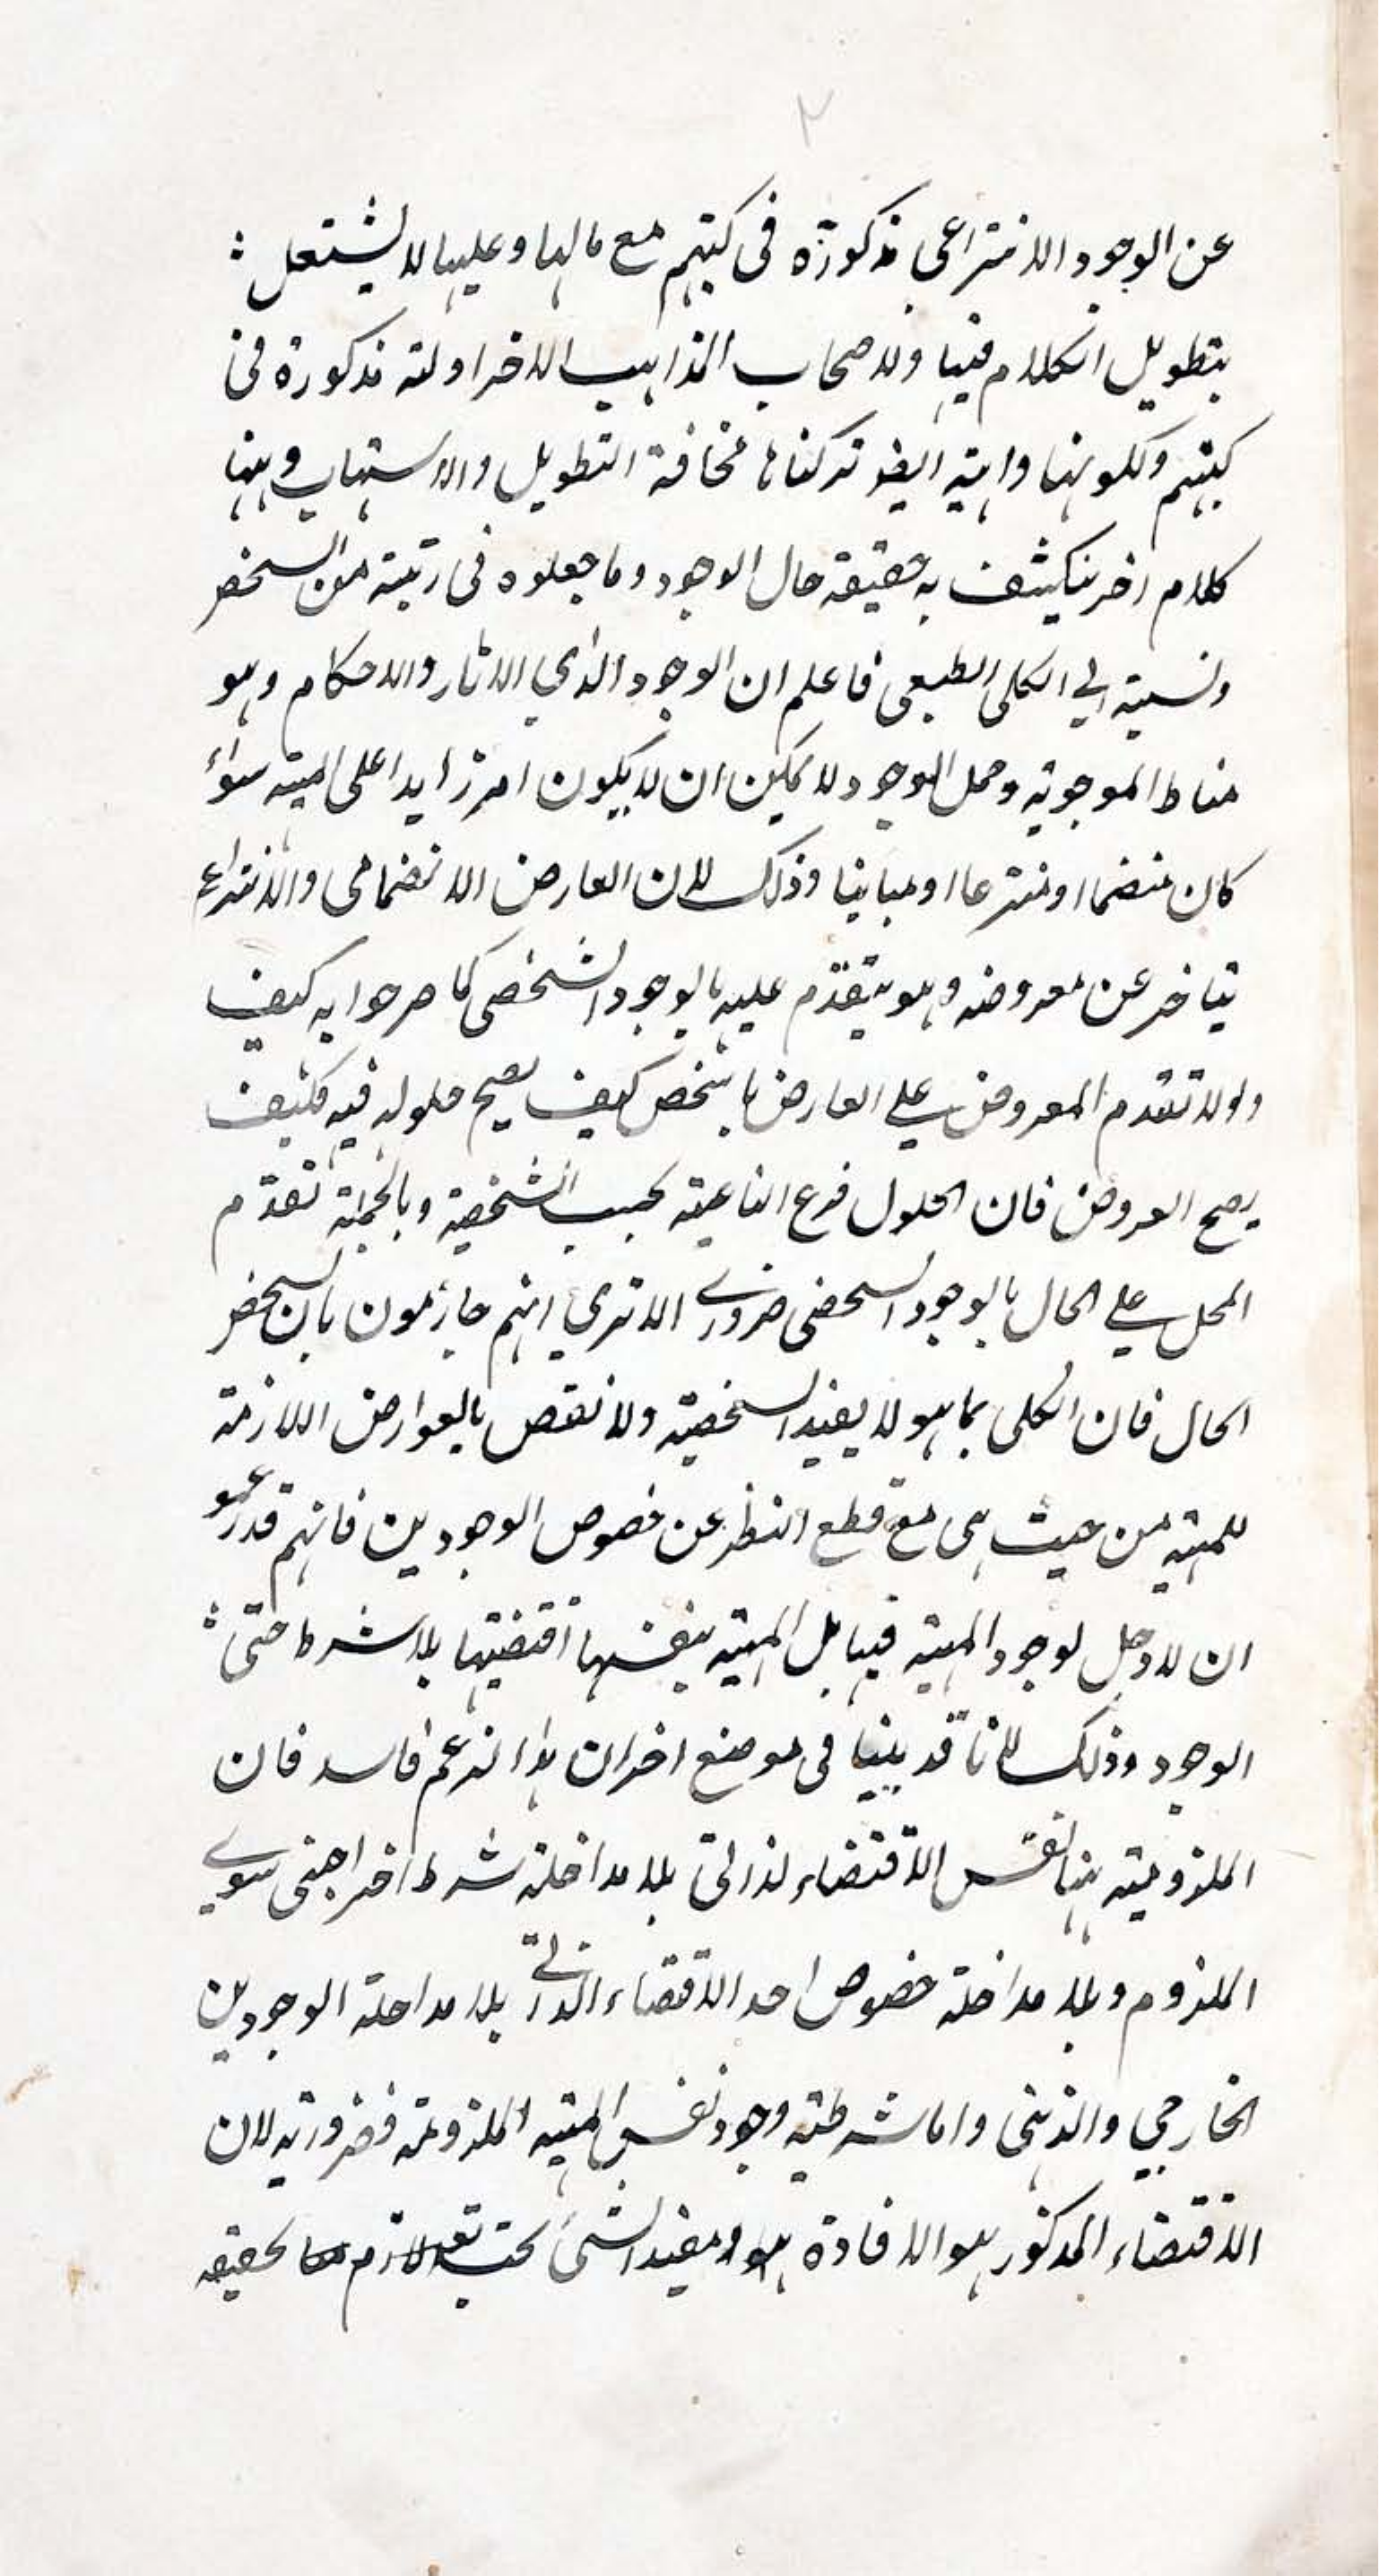 ٢
عن الوجود الانتزاعى مذكورة فى كتبهم مع مالها وعليها لا نشتغل
بتطويل الكلام فيها ولاصحاب المذاهب الاخر ادلته مذكورة فى
كتبهم ولكونها واهية ايضا تركناها مخافة التطويل والاسهاب وههنا
كلام اخر ينكشف به حقيقة حال الوجود وما جعلوه فى رتبة من التشخص
ونسبته الي الكلى الطبعى فاعلم ان الوجود الذي الاثار والاحكام وهو
مناط الموجودية وحمل الوجود لا يمكن ان لا يكون امر زايدا على المهية سواء
كان منضما او منتزعا او مباينا وذلك لان العارض الانضمامى والانتزاعى
يتاخر عن معروضه وهو يتقدم عليه بالوجود الشخصى كما صرحوا به كيف
ولولا تقدم المعروض علي العارض بالشخص كيف يصح حلوله فيه فكيف
يصح العروض فان الحلول فرع الناعتية بحسب الشخصية وبالجملة تقدم
المحل علي الحال بالوجود الشخصى ضروري الا تري انهم جازمون بان تشخص
الحال فان الكلى بما هو لا يفيد الشخصية ولا نقض بالعوارض اللازمة
للمهية من حيث هى مع قطع النظر عن خصوص الوجودين فانهم قد زعموا
ان لا دخل لوجود المهية فيها بل المهية بنفسها اقتضتها بلا شرط حتى
الوجود وذلك لانا قد بينا فى موضع اخر ان هذا الزعم فاسد فان
الملزومية هنا نفس الاقتضاء لذاتى بلا مداخلة شرط اخر اجنبى سوي
الملزوم وبلا مداخلة خصوص احد الاقتضاء الذاتي بلا مداخلة الوجودين
الخارجي والذهنى واما شرطية وجود نفس المهية الملزومة فضرورية لان
الاقتضاء المذكور هو الافادة هو ومفيد الشئ يحقيقه